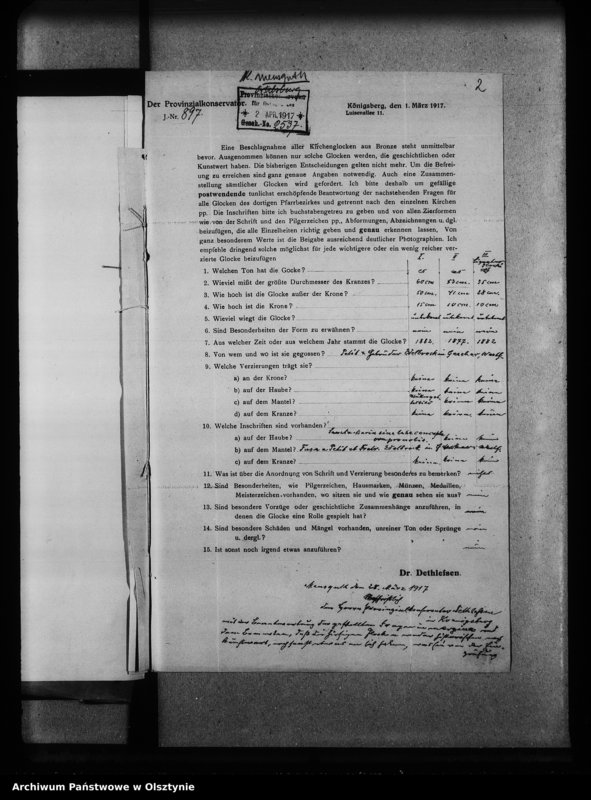 K. Mensguth
2
Der Provinzialkonservator.
J.-Nr. 897.
2 APR 1917
Gesch.-No. 2537.
Königsberg, den 1. März 1917.
Luisenallee 11.
Eine Beschlagnahme aller Kirchenglocken aus Bronze steht unmittelbar
bevor. Ausgenommen können nur solche Glocken werden, die geschichtlichen oder
Kunstwert haben. Die bisherigen Entscheidungen gelten nicht mehr. Um die Befrei-
ung zu erreichen sind ganz genaue Angaben notwendig. Auch eine Zusammen-
stellung sämtlicher Glocken wird gefordert. Ich bitte deshalb um gefällige
postwendende tunlichst erschöpfende Beantwortung der nachstehenden Fragen für
alle Glocken des dortigen Pfarrbezirkes und getrennt nach den einzelnen Kirchen
pp. Die Inschriften bitte ich buchstabengetreu zu geben und von allen Zierformen
wie von der Schrift und den Pilgerzeichen pp., Abformungen, Abzeichnungen u. dgl.
beizufügen, die alle Einzelheiten richtig geben und genau erkennen lassen. Von
ganz besonderem Werte ist die Beigabe ausreichend deutlicher Photographien. Ich
empfehle dringend solche möglichst für jede wichtigere oder ein wenig reicher ver-
zierte Glocke beizufügen
I. II III
1. Welchen Ton hat die Gocke?
2. Wieviel mißt der größte Durchmesser des Kranzes? 60 cm 53 cm 35 cm
3. Wie hoch ist die Glocke außer der Krone? 50 cm. 41 cm 28 cm
4. Wie hoch ist die Krone? 15 cm 10 cm 10 cm
5. Wieviel wiegt die Glocke? unbekannt unbekannt unbekannt
6. Sind Besonderheiten der Form zu erwähnen? nein nein nein
7. Aus welcher Zeit oder aus welchem Jahr stammt die Glocke? 1882. 1877. 1882
8. Von wem und wo ist sie gegossen? Petit & Gebrüder Edelbrock in Gescher, Westf.
9. Welche Verzierungen trägt sie?
a) an der Krone? keine keine keine
b) auf der Haube? keine keine keine
c) auf dem Mantel? keine keine
d) auf dem Kranze? keine keine keine
10. Welche Inschriften sind vorhanden?
a) auf der Haube? Sancta Maria sine labe concepta ora pro nobis. keine keine
b) auf dem Mantel? Petit et Fratr. Edelbrock
c) auf dem Kranze? keine keine keine
11. Was ist über die Anordnung von Schrift und Verzierung besonderes zu bemerken? nichts
12. Sind Besonderheiten, wie Pilgerzeichen, Hausmarken, Münzen, Medaillen,
Meisterzeichen vorhanden, wo sitzen sie und wie genau sehen sie aus? nein
13. Sind besondere Vorzüge oder geschichtliche Zusammenhänge anzuführen, in
denen die Glocke eine Rolle gespielt hat? nein
14. Sind besondere Schäden und Mängel vorhanden, unreiner Ton oder Sprünge
u. dergl.? nein
15. Ist sonst noch irgend etwas anzuführen? nein
Dr. Dethlefsen.
Mensguth den 28. März 1917
dem Herrn Provinzialkonservator Dethlefsen
in Königsberg
Archiwum Państwowe w Olsztynie